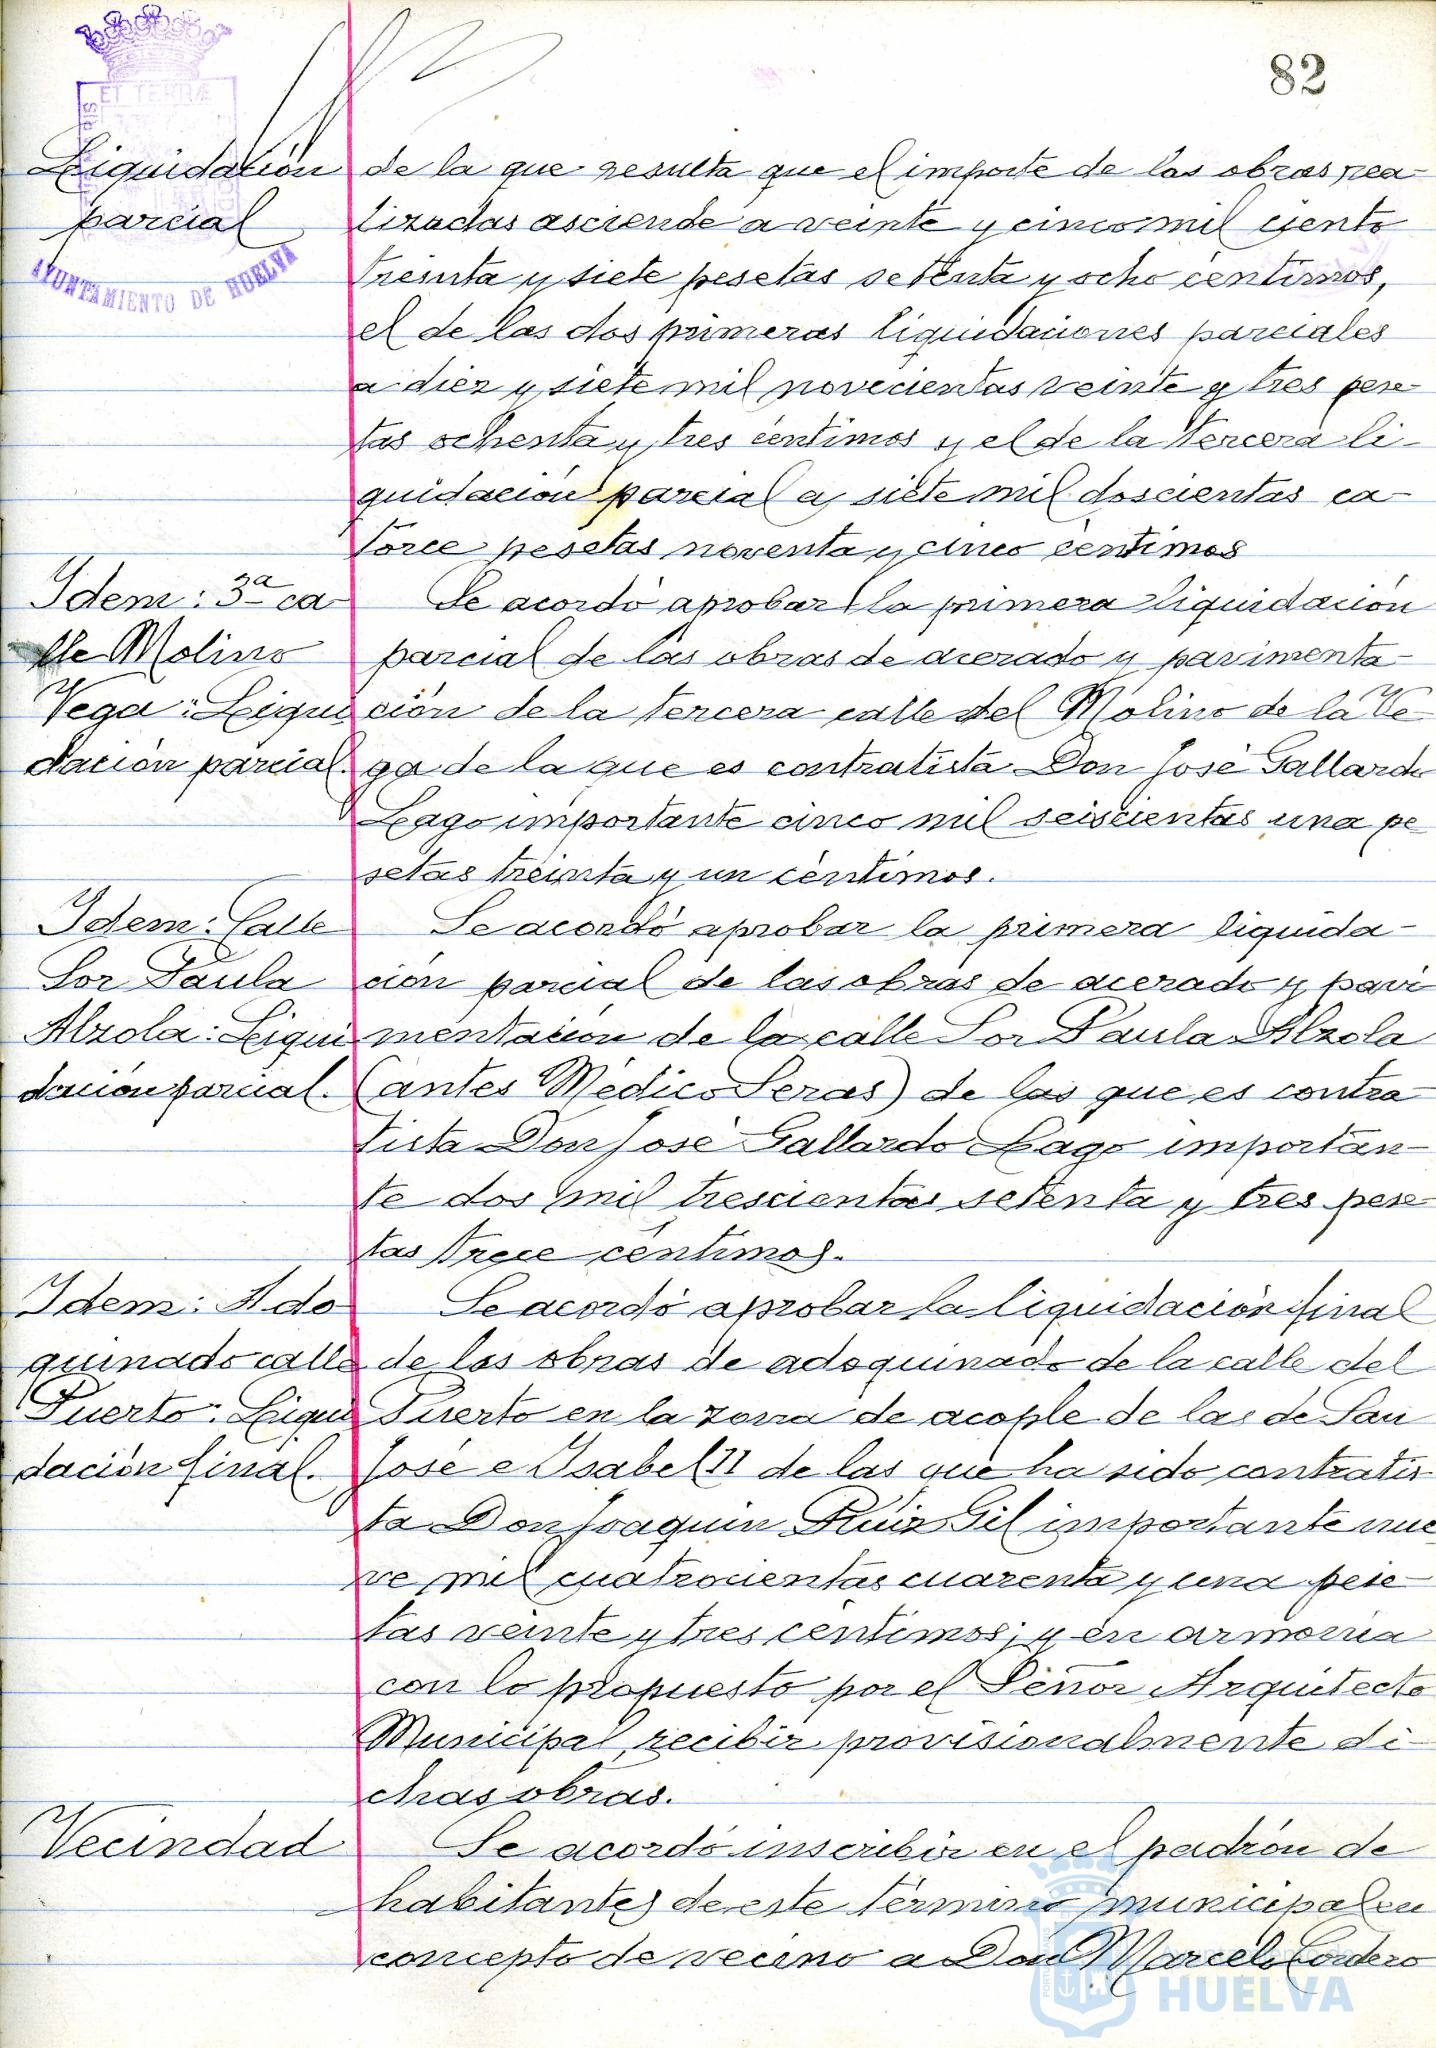 82
ET TERRÆ
AYUNTAMIENTO DE HUELVA
Liquidación
parcial
de la que resulta que el importe de las obras rea-
lizadas asciende a veinte y cinco mil ciento
treinta y siete pesetas setenta y ocho centimos,
el de las dos primeras liquidaciones parciales
a diez y siete mil novecientas veinte y tres pese-
tas ochenta y tres centimos y el de la tercera li-
quidación parcial a siete mil doscientas ca-
torce pesetas noventa y cinco centimos
Idem: 3ª ca-
lle Molino
Vega: Liqui
dación parcial.
Se acordó aprobar la primera liquidación
parcial de las obras de acerado y pavimenta-
ción de la tercera calle del Molino de la Ve-
ga de la que es contratista Don José Gallardo
Lago importante cinco mil seiscientas una pe
setas treinta y un centimos.
Idem: Calle
Sor Paula
Alzola: Liqui
dación parcial.
Se acordó aprobar la primera liquida-
ción parcial de las obras de acerado y pavi
mentación de la calle Sor Paula Alzola
(antes Médico Seras) de las que es contra-
tista Don José Gallardo Lago importan-
te dos mil trescientas setenta y tres pese-
tas trece centimos.
Idem: Ado
quinado calle
Puerto: Liqui
dación final.
Se acordó aprobar la liquidación final
de las obras de adoquinado de la calle del
Puerto en la zona de acople de las de San
José e Isabel II de las que ha sido contratis-
ta Don Joaquin Ruiz Gil importante nue
ve mil cuatrocientas cuarenta y una pese-
tas veinte y tres centimos; y en armonia
con lo propuesto por el Señor Arquitecto
Municipal, recibir provisionalmente di-
chas obras.
Vecindad
Se acordó inscribir en el padrón de
habitantes de este término municipal en
concepto de vecino a Don Marcelo Cordero
HUELVA